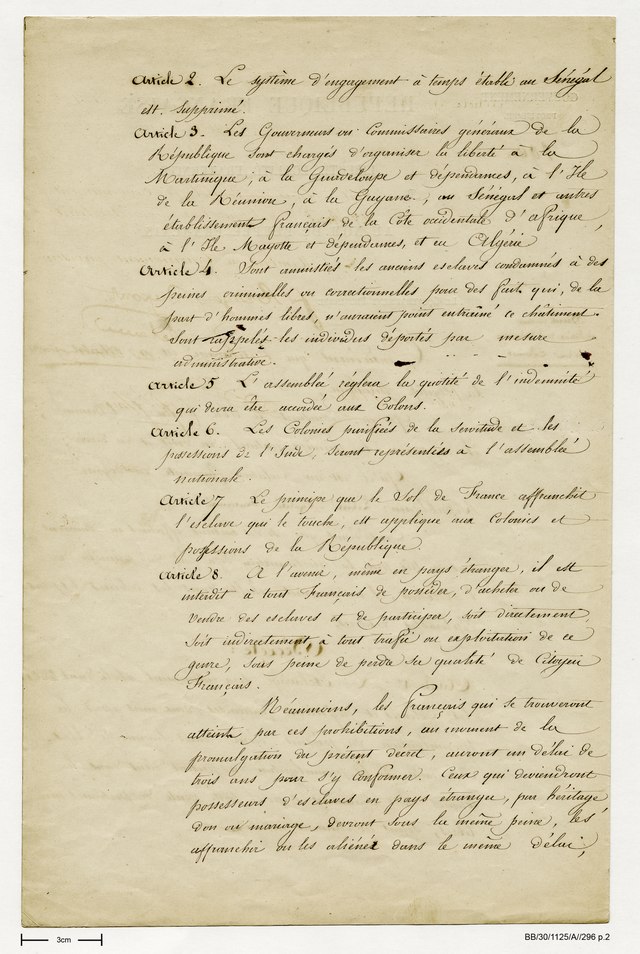 Article 2. Le système d'engagement à temps établi au Sénégal
est supprimé.
Article 3. Les Gouverneurs ou Commissaires généraux de la
République sont chargés d'organiser la liberté à la
Martinique, à la Guadeloupe et dépendances, à l'Ile
de la Réunion, à la Guyane, au Sénégal et autres
établissements français de la Côte occidentale d'afrique,
à l'Ile Mayotte et dépendances, et en Algérie
Article 4. Sont amnistiés les anciens esclaves condamnés à des
peines criminelles ou correctionnelles pour des faits qui, de la
part d'hommes libres, n'auraient point entrainé ce châtiment.
Sont rappelés les individus déportés par mesure
administrative.
Article 5 L'assemblée règlera la quotité de l'indemnité
qui devra être accordée aux Colons.
Article 6. Les Colonies purifiées de la Servitude et les
possessions de l'Inde, seront représentées à l'assemblée
nationale.
Article 7 Le principe que le Sol de France affranchit
l'esclave qui le touche, est appliqué aux Colonies et
possessions de la République.
Article 8. A l'avenir, même en pays étranger, il est
interdit à tout Français de posséder, d'acheter ou de
vendre des esclaves et de participer, soit directement,
soit indirectement, à tout trafic ou exploitation de ce
genre, sous peine de perdre sa qualité de Citoyen
Français.
Néaumoins, les français qui se trouveront
atteints par ces prohibitions, au moment de la
promulgation du présent décret, auront un délai de
trois ans pour s'y Conformer. Ceux qui deviendront
possesseurs d'esclaves en pays étranger, par héritage
don ou mariage, devront sous la même peine, les
affranchir ou les aliéner dans le même délai,
3cm
BB/30/1125/A//296 p.2